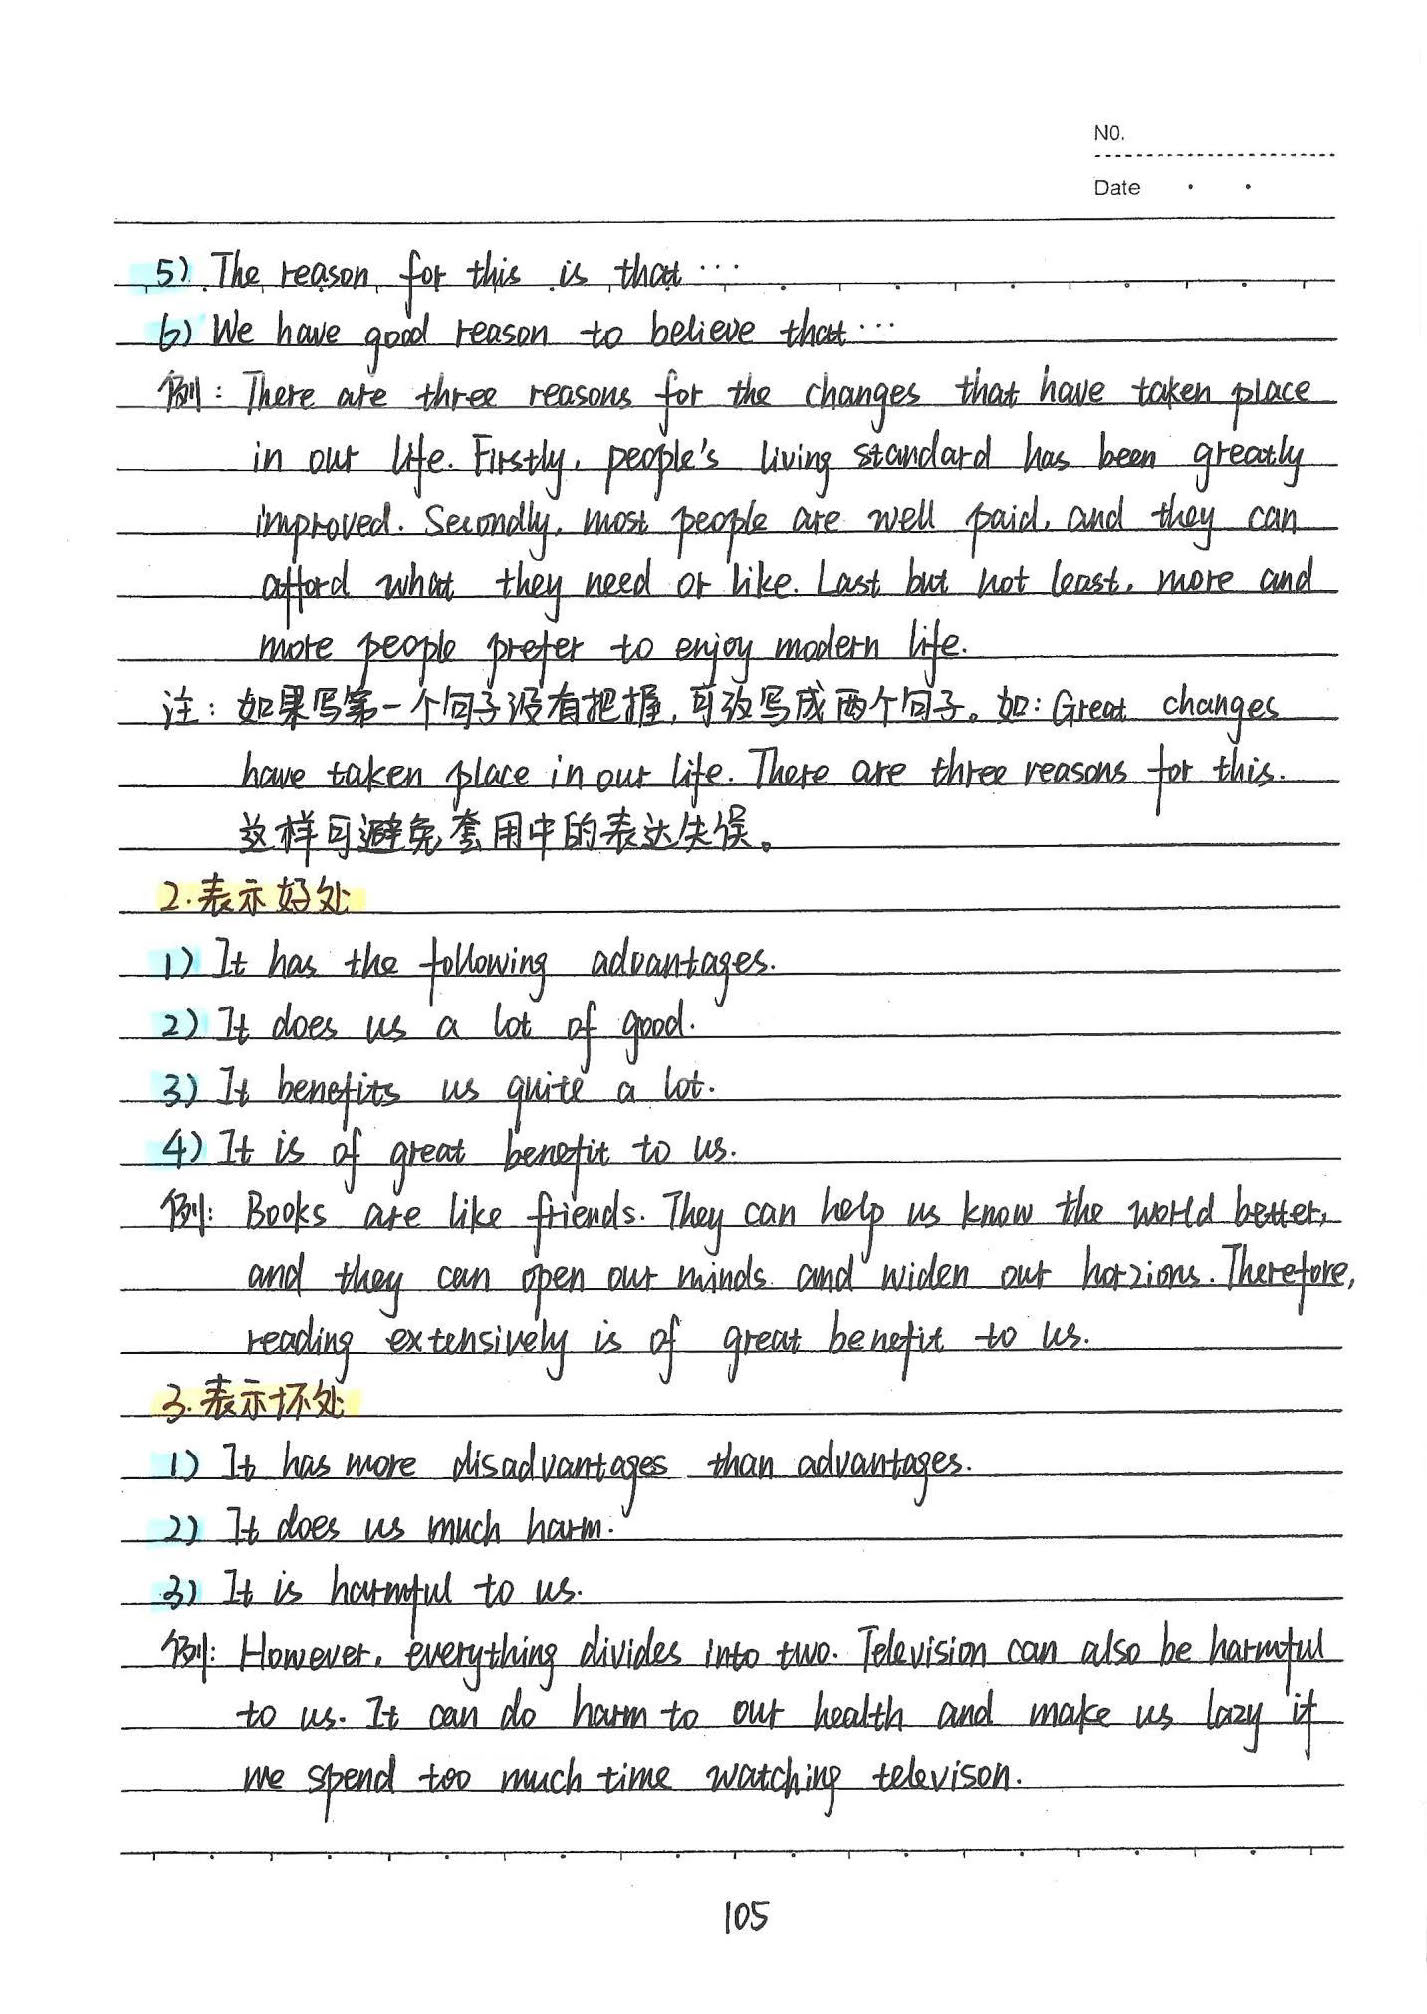 NO.
Date
5) The reason for this is that…
6) We have good reason to believe that…
例: There are three reasons for the changes that have taken place
in our life. Firstly, people's living standard has been greatly
improved. Secondly, most people are well paid, and they can
afford what they need or like. Last but not least, more and
more people prefer to enjoy modern life.
注: 如果写第一个句子没有把握,可改写成两个句子。如: Great changes
have taken place in our life. There are three reasons for this.
这样可避免套用中的表达失误。
2.表示好处
1) It has the following advantages.
2) It does us a lot of good.
3) It benefits us quite a lot.
4) It is of great benefit to us.
例: Books are like friends. They can help us know the world better,
and they can open our minds and widen our horzions. Therefore,
reading extensively is of great benefit to us.
3.表示坏处
1) It has more disadvantages than advantages.
2) It does us much harm.
3) It is harmful to us.
例: However, everything divides into two. Television can also be harmful
to us. It can do harm to our health and make us lazy if
we spend too much time watching televison.
105